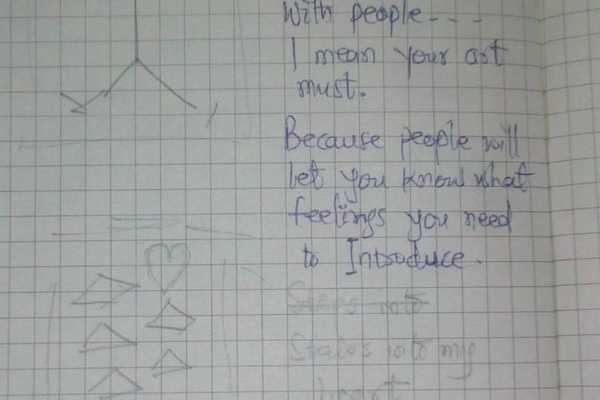 With people - - -
I mean your art
must.
Because people will
let you know what
feelings you need
to Introduce.
Stares into
Stares into my
heart